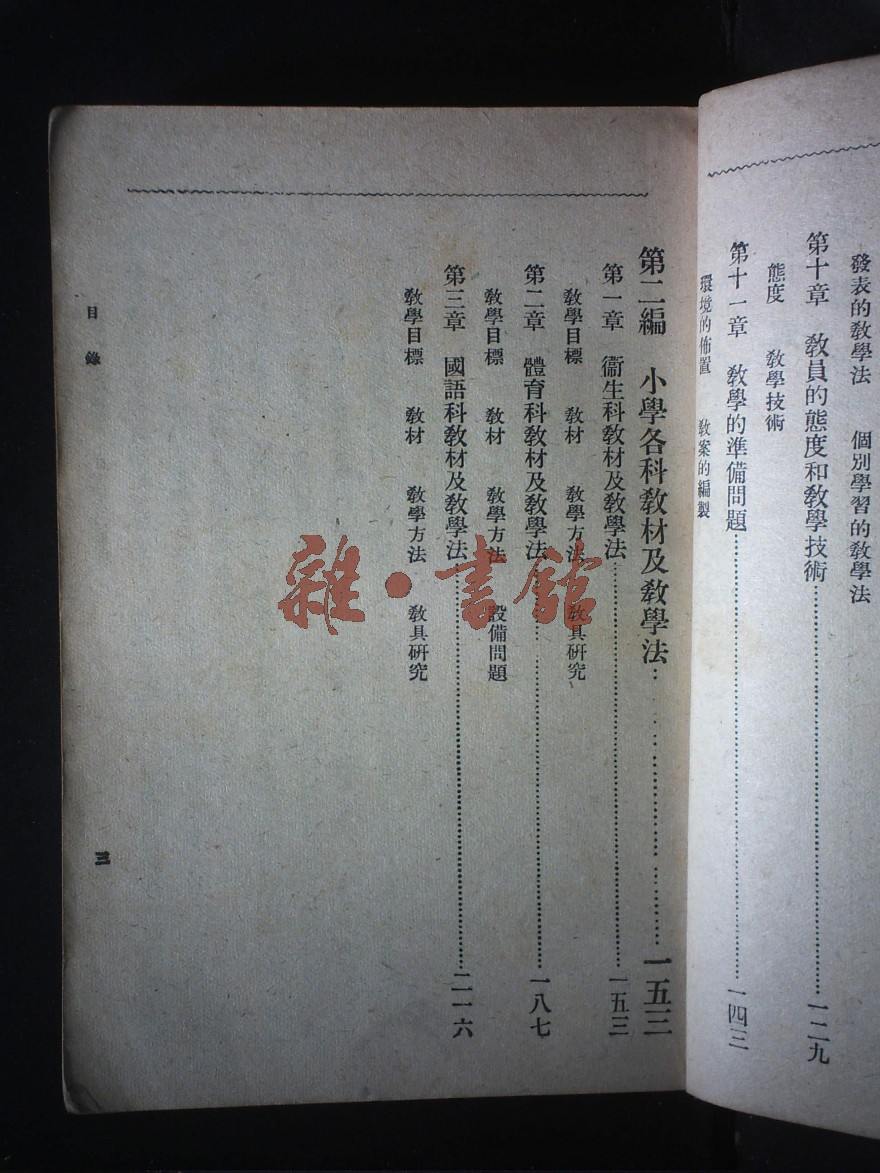 發表的教學法　個別學習的教學法
第十章　教員的態度和教學技術……一二九
態度　教學技術
第十一章　教學的準備問題……一四三
環境的佈置　教案的編製
第二編　小學各科教材及教學法……一五三
第一章　衞生科教材及教學法……一五三
教學目標　教材　教學方法　教具研究
第二章　體育科教材及教學法……一八七
教學目標　教材　教學方法　設備問題
第三章　國語科教材及教學法……二一六
教學目標　教材　教學方法　教具研究
目錄
三
雜·書館